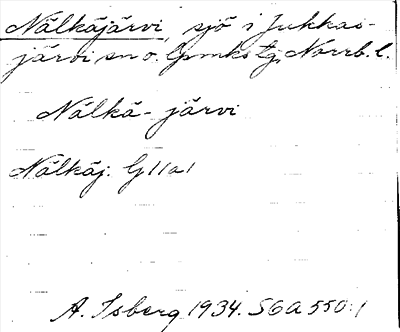 Nälkäjärvi, sjö i Jukkas-
järvi sn o. lpmkstg, Norrb. l.
Nälkä-järvi
Nälkäj. G11a1
A. Isberg 1934. SOA 550:1